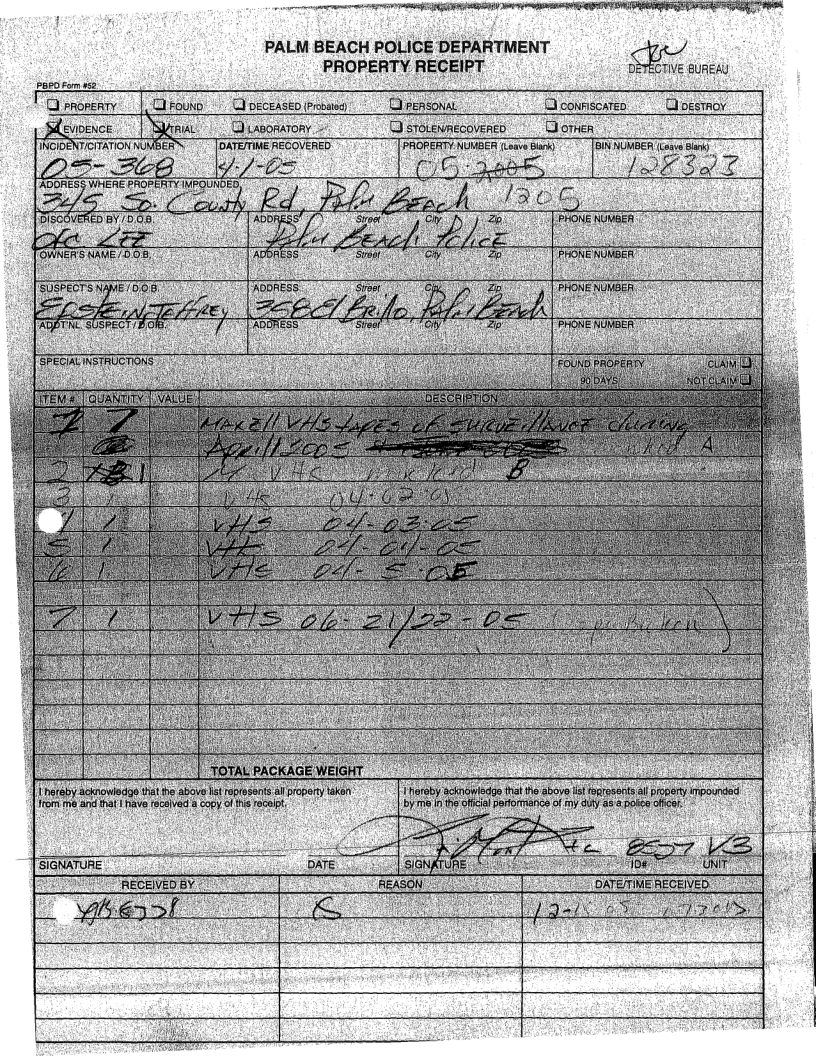 PALM BEACH POLICE DEPARTMENT
PROPERTY RECEIPT
DETECTIVE BUREAU
PBPD Form #52
PROPERTY FOUND DECEASED (Probated) PERSONAL CONFISCATED DESTROY
EVIDENCE TRIAL LABORATORY STOLEN/RECOVERED OTHER
INCIDENT/CITATION NUMBER DATE/TIME RECOVERED PROPERTY NUMBER (Leave Blank) BIN NUMBER (Leave Blank)
05-368 4-1-05 05-2005 128323
ADDRESS WHERE PROPERTY IMPOUNDED
345 So. County Rd, Palm Beach 1205
DISCOVERED BY / D.O.B. ADDRESS Street City Zip PHONE NUMBER
Ofc LEE Palm BEACh Police
OWNER'S NAME / D.O.B. ADDRESS Street City Zip PHONE NUMBER
SUSPECT'S NAME / D.O.B. ADDRESS Street City Zip PHONE NUMBER
EPSTEIN, JEffREY 358 El Brillo, Palm BEACh
ADDT'NL. SUSPECT / D.O.B. ADDRESS Street City Zip PHONE NUMBER
SPECIAL INSTRUCTIONS FOUND PROPERTY CLAIM
90 DAYS NOT CLAIM
ITEM # QUANTITY VALUE DESCRIPTION
1 7 MAXEll VHS tAPES of SURVEillANCE during
April 2005 A
2 1 VHS B
3 1 VHS 04-02-05
1 VHS 04-03-05
5 1 VHS 04-04-05
6 1 VHS 04-5-05
7 1 VHS 06-21/22-05
TOTAL PACKAGE WEIGHT
I hereby acknowledge that the above list represents all property taken
from me and that I have received a copy of this receipt.
I hereby acknowledge that the above list represents all property impounded
by me in the official performance of my duty as a police officer.
8557 V3
SIGNATURE DATE SIGNATURE ID# UNIT
RECEIVED BY REASON DATE/TIME RECEIVED